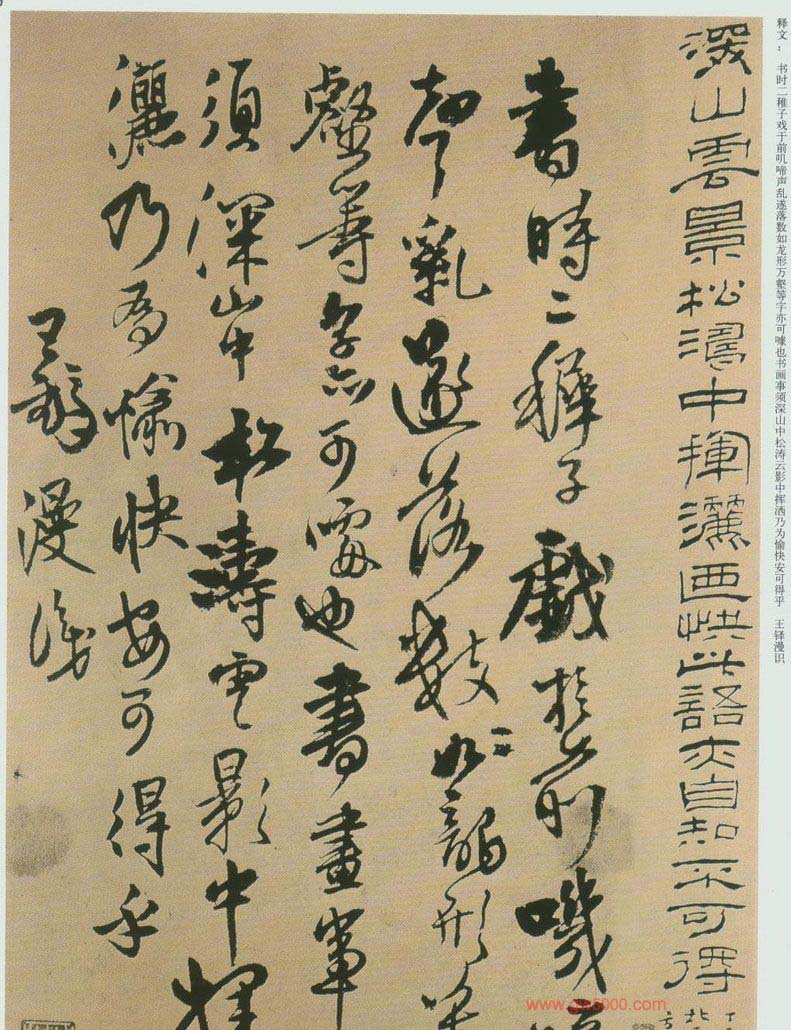 释文： 书时二稚子戏于前叽啼声乱遂落数如龙形万壑等字亦可噱也书画事须深山中松涛云影中挥洒乃为愉快安可得乎 王铎漫识
深山雲景松濤中揮灑画快此語亦自知不可得
書時二穉子戲於前嘰
聲亂遂落數如龍形
壑等字亦可噱也書畫事
須深山中松濤雲影中揮
灑乃為愉快安可得乎
王鐸漫識